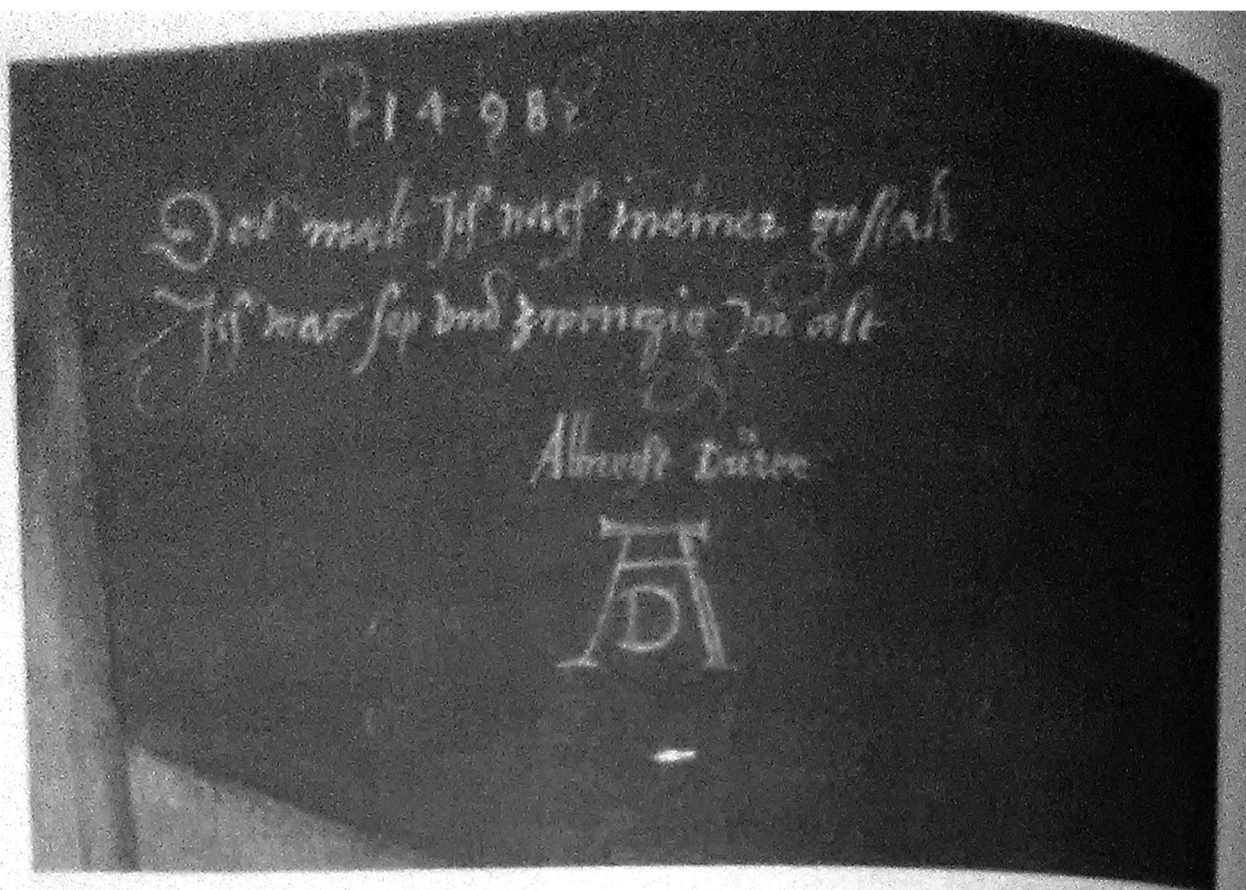 1498
Das malt Ich nach meiner gestalt
Ich war sex vnd zwenczig Jor alt
Albrecht Dürer
AD